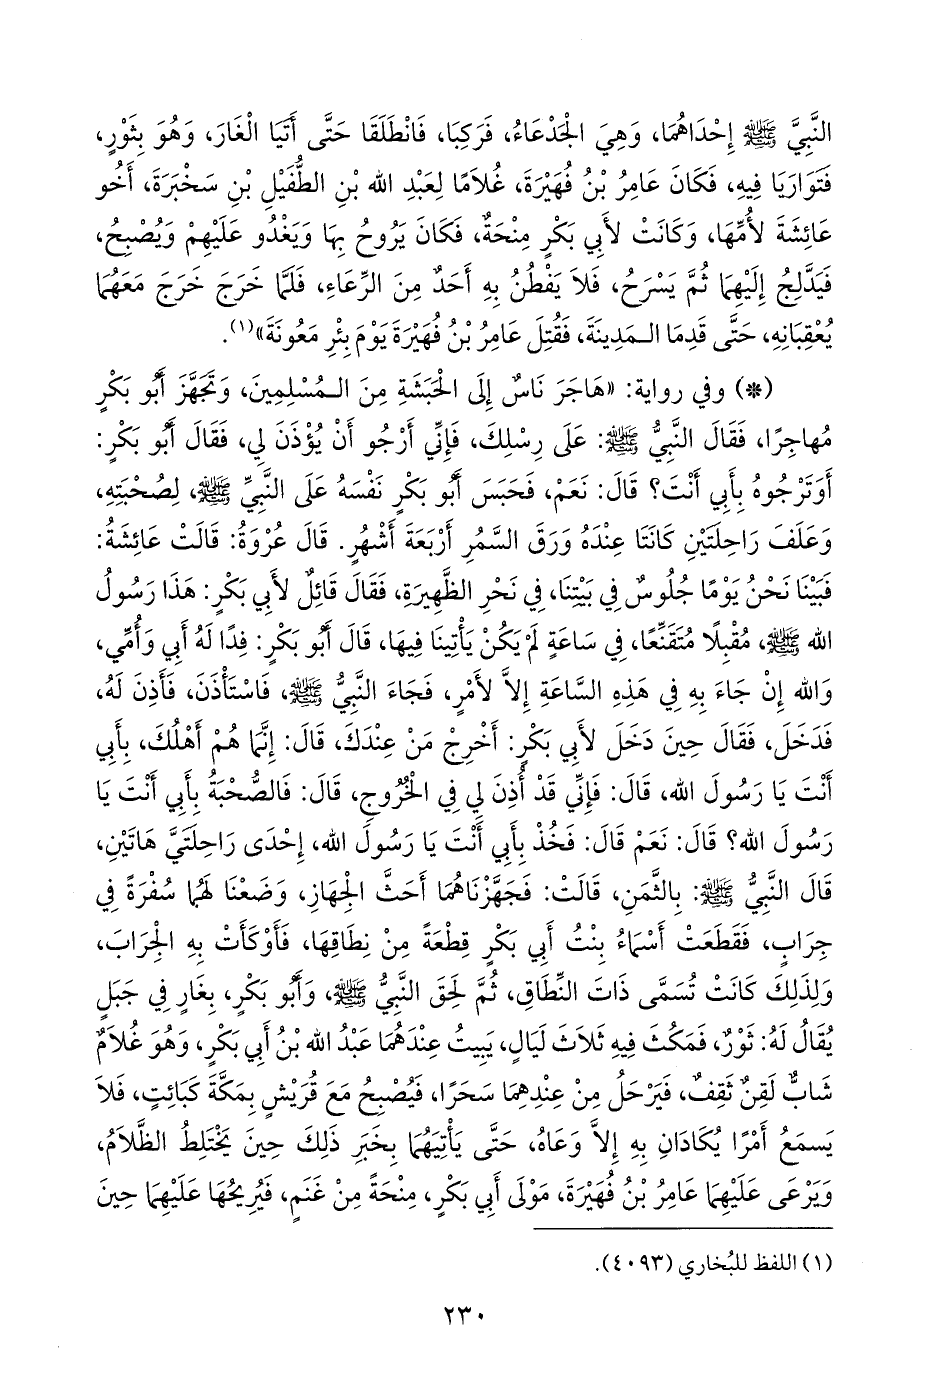 النَّبِيَّ ﷺ إِحْدَاهُمَا، وَهِيَ الْجَدْعَاءُ، فَرَكِبَا، فَانْطَلَقَا حَتَّى أَتَيَا الْغَارَ، وَهُوَ بِثَوْرٍ،
فَتَوَارَيَا فِيهِ، فَكَانَ عَامِرُ بْنُ فُهَيْرَةَ، غُلاَمًا لِعَبْدِ الله بْنِ الطُّفَيْلِ بْنِ سَخْبَرَةَ، أَخُو
عَائِشَةَ لأُمِّهَا، وَكَانَتْ لأَبِي بَكْرٍ مِنْحَةٌ، فَكَانَ يَرُوحُ بِهَا وَيَغْدُو عَلَيْهِمْ وَيُصْبِحُ،
فَيَدَّلِجُ إِلَيْهِمَا ثُمَّ يَسْرَحُ، فَلاَ يَفْطُنُ بِهِ أَحَدٌ مِنَ الرِّعَاءِ، فَلَمَّا خَرَجَ خَرَجَ مَعَهُمَا
يُعْقِبَانِهِ، حَتَّى قَدِمَا الـمَدِينَةَ، فَقُتِلَ عَامِرُ بْنُ فُهَيْرَةَ يَوْمَ بِئْرِ مَعُونَةَ»(١).
(*) وفي رواية: «هَاجَرَ نَاسٌ إِلَى الْحَبَشَةِ مِنَ الـمُسْلِمِينَ، وَتَجَهَّزَ أَبُو بَكْرٍ
مُهاجِرًا، فَقَالَ النَّبِيُّ ﷺ: عَلَى رِسْلِكَ، فَإِنِّي أَرْجُو أَنْ يُؤْذَنَ لِي، فَقَالَ أَبُو بَكْرٍ:
أَوَتَرْجُوهُ بِأَبِي أَنْتَ؟ قَالَ: نَعَمْ، فَحَبَسَ أَبُو بَكْرٍ نَفْسَهُ عَلَى النَّبِيِّ ﷺ، لِصُحْبَتِهِ،
وَعَلَفَ رَاحِلَتَيْنِ كَانَتَا عِنْدَهُ وَرَقَ السَّمُرِ أَرْبَعَةَ أَشْهُرٍ. قَالَ عُرْوَةُ: قَالَتْ عَائِشَةُ:
فَبَيْنَا نَحْنُ يَوْمًا جُلُوسٌ فِي بَيْتِنَا، فِي نَحْرِ الظَّهِيرَةِ، فَقَالَ قَائِلٌ لأَبِي بَكْرٍ: هَذَا رَسُولُ
الله ﷺ، مُقْبِلًا مُتَقَنِّعًا، فِي سَاعَةٍ لَمْ يَكُنْ يَأْتِينَا فِيهَا، قَالَ أَبُو بَكْرٍ: فِدًا لَهُ أَبِي وَأُمِّي،
وَالله إِنْ جَاءَ بِهِ فِي هَذِهِ السَّاعَةِ إِلاَّ لأَمْرٍ، فَجَاءَ النَّبِيُّ ﷺ، فَاسْتَأْذَنَ، فَأَذِنَ لَهُ،
فَدَخَلَ، فَقَالَ حِينَ دَخَلَ لأَبِي بَكْرٍ: أَخْرِجْ مَنْ عِنْدَكَ، قَالَ: إِنَّمَا هُمْ أَهْلُكَ، بِأَبِي
أَنْتَ يَا رَسُولَ الله، قَالَ: فَإِنِّي قَدْ أُذِنَ لِي فِي الْخُرُوجِ، قَالَ: فَالصُّحْبَةُ بِأَبِي أَنْتَ يَا
رَسُولَ الله؟ قَالَ: نَعَمْ قَالَ: فَخُذْ بِأَبِي أَنْتَ يَا رَسُولَ الله، إِحْدَى رَاحِلَتَيَّ هَاتَيْنِ،
قَالَ النَّبِيُّ ﷺ: بِالثَّمَنِ، قَالَتْ: فَجَهَّزْنَاهُمَا أَحَثَّ الْجِهَازِ، وَضَعْنَا لَهُمَا سُفْرَةً فِي
جِرَابٍ، فَقَطَعَتْ أَسْمَاءُ بِنْتُ أَبِي بَكْرٍ قِطْعَةً مِنْ نِطَاقِهَا، فَأَوْكَأَتْ بِهِ الْجِرَابَ،
وَلِذَلِكَ كَانَتْ تُسَمَّى ذَاتَ النِّطَاقِ، ثُمَّ لَحِقَ النَّبِيُّ ﷺ، وَأَبُو بَكْرٍ، بِغَارٍ فِي جَبَلٍ
يُقَالُ لَهُ: ثَوْرٌ، فَمَكُثَ فِيهِ ثَلاَثَ لَيَالٍ، يَبِيتُ عِنْدَهُمَا عَبْدُ الله بْنُ أَبِي بَكْرٍ، وَهُوَ غُلاَمٌ
شَابٌّ لَقِنٌ ثَقِفٌ، فَيَرْحَلُ مِنْ عِنْدِهِمَا سَحَرًا، فَيُصْبِحُ مَعَ قُرَيْشٍ بِمَكَّةَ كَبَائِتٍ، فَلاَ
يَسمَعُ أَمْرًا يُكَادَانِ بِهِ إِلاَّ وَعَاهُ، حَتَّى يَأْتِيَهُمَا بِخَبَرِ ذَلِكَ حِينَ يَخْتَلِطُ الظَّلاَمُ،
وَيَرْعَى عَلَيْهِمَا عَامِرُ بْنُ فُهَيْرَةَ، مَوْلَى أَبِي بَكْرٍ، مِنْحَةً مِنْ غَنَمٍ، فَيُرِيحُهَا عَلَيْهِمَا حِينَ
(١) اللفظ للبُخاري (٤٠٩٣).
٢٣٠